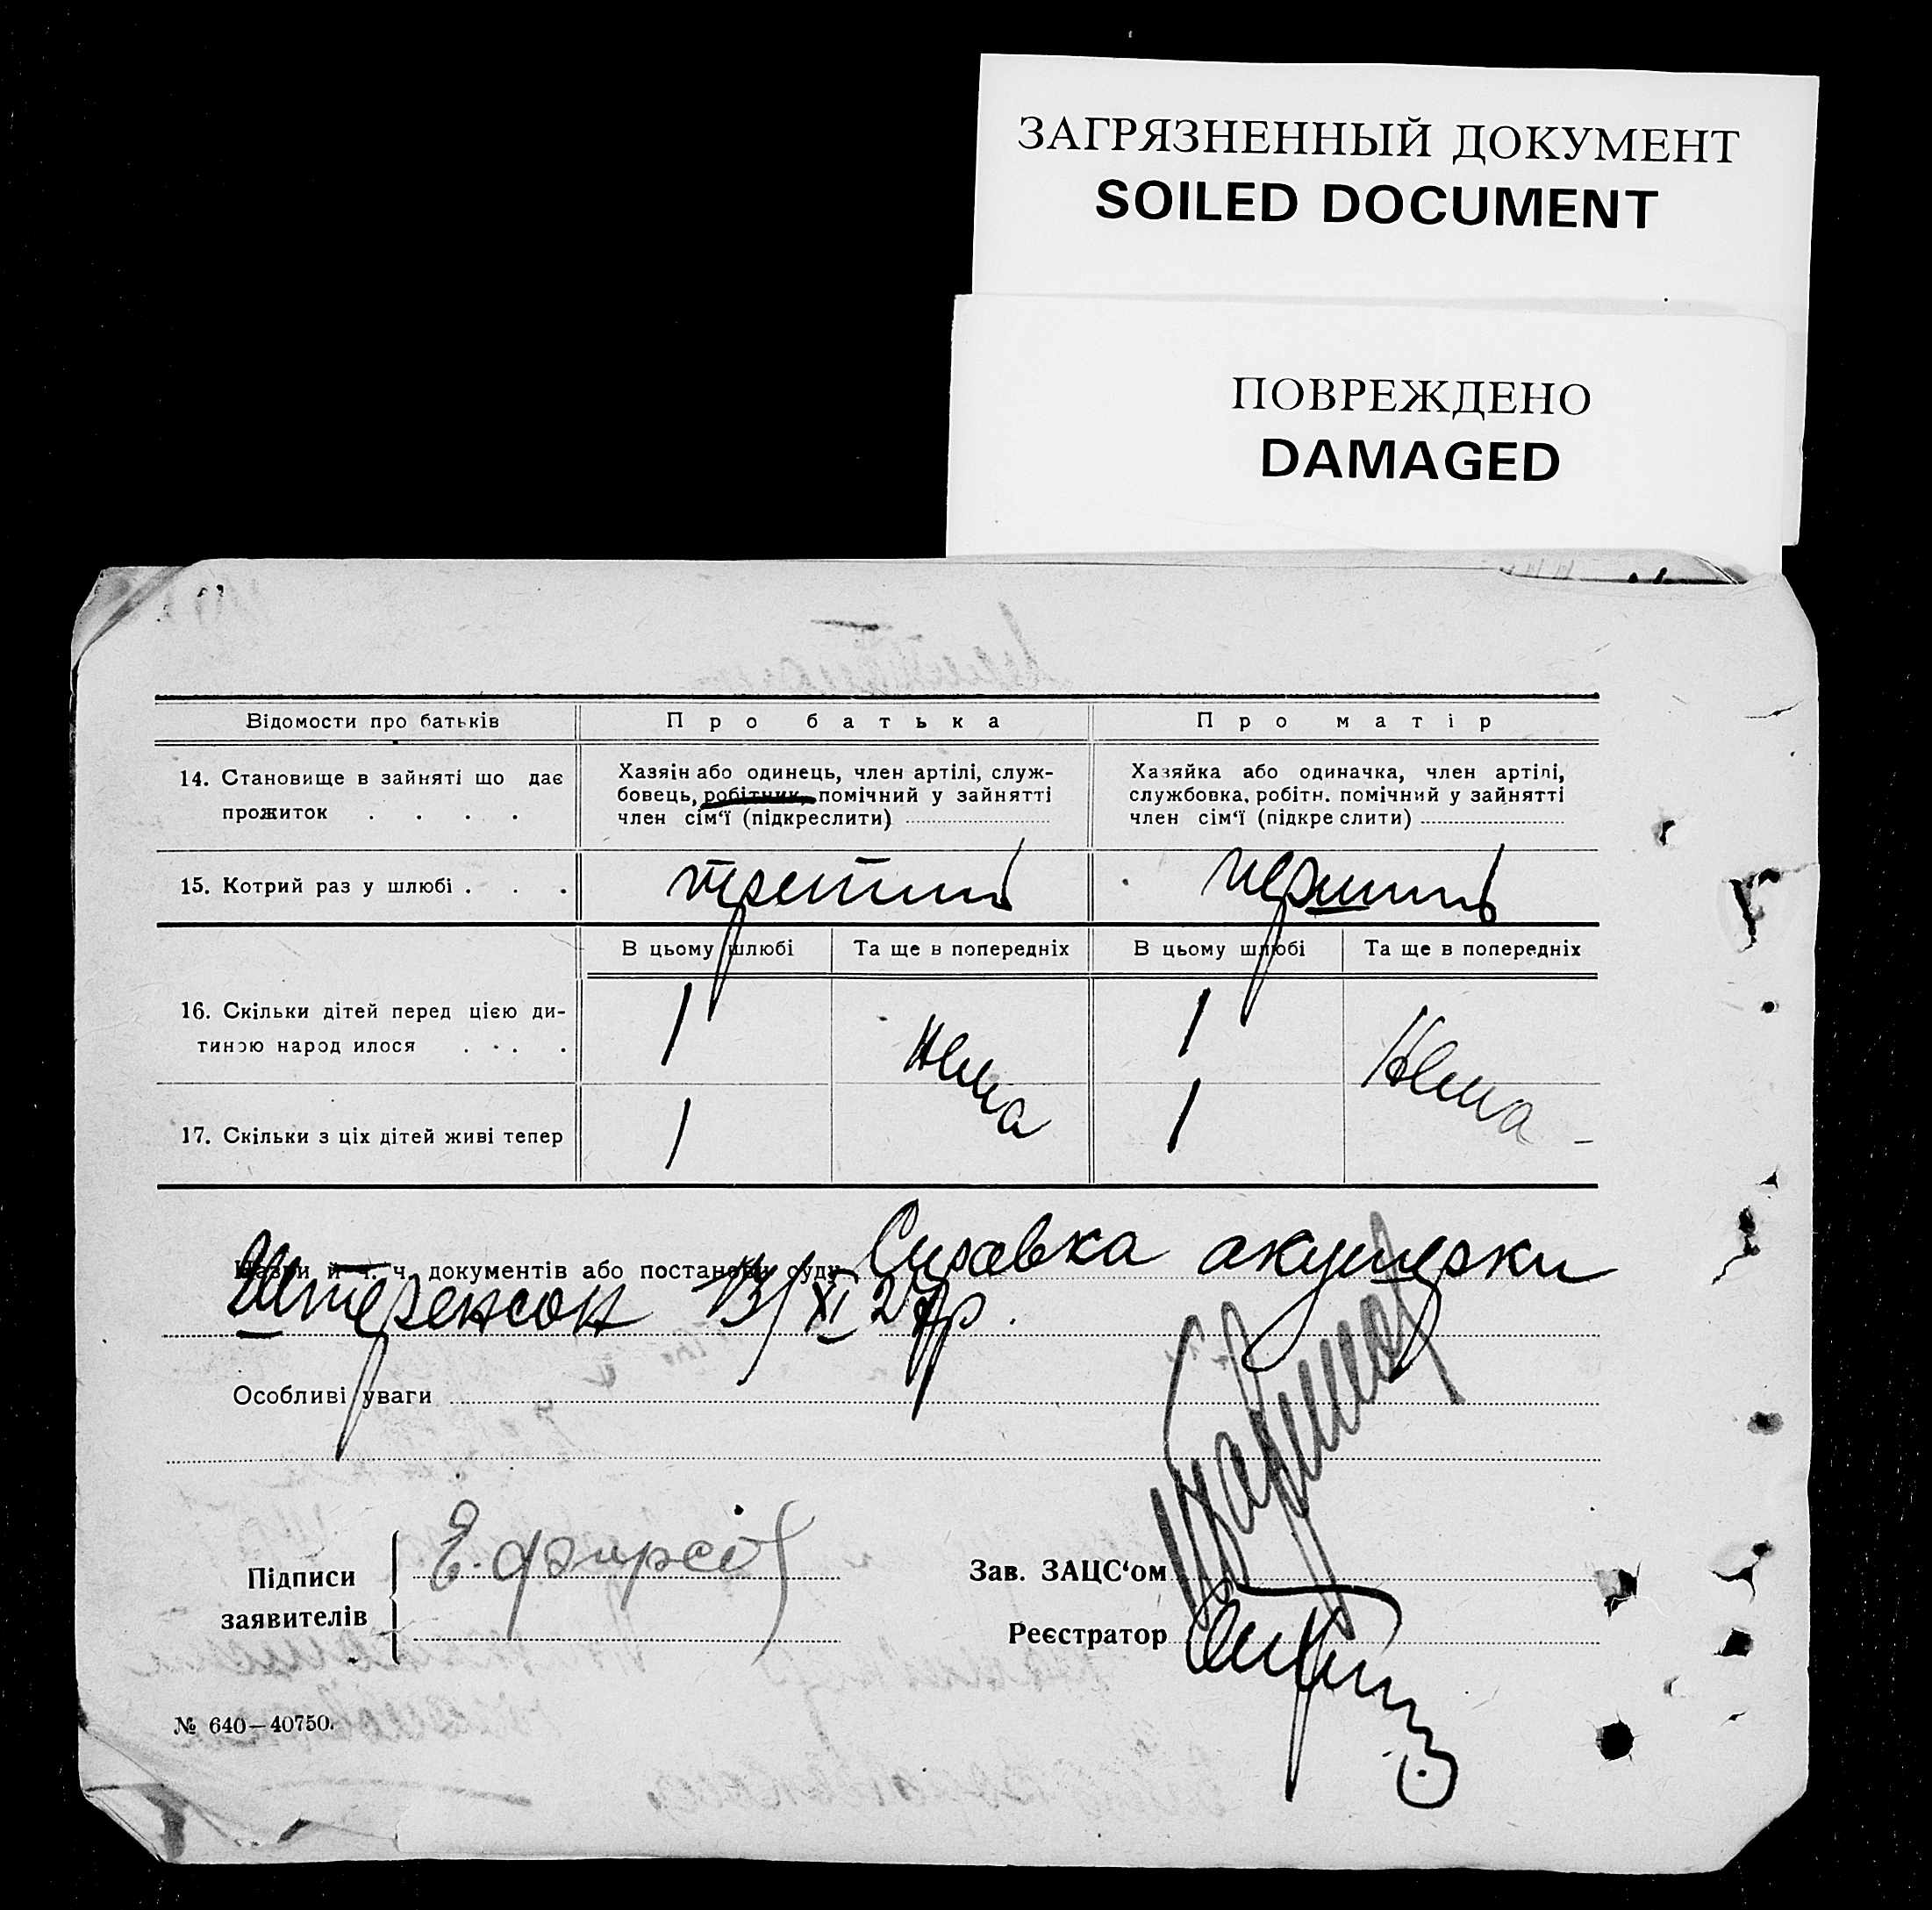 ЗАГРЯЗНЕННЫЙ ДОКУМЕНТ
SOILED DOCUMENT
ПОВРЕЖДЕНО
DAMAGED
Відомости про батьків
Про батька
Про матір
14. Становище в зайняті що дає
прожиток . . . .
Хазяін або одинець, член артілі, служ-
бовець, робітник, помічний у зайнятті
член сім‘ї (підкреслити)
Хазяйка або одиначка, член артілі,
службовка, робітн. помічний у зайнятті
член сім‘ї (підкре слити)
15. Котрий раз у шлюбі . . .
третий
первий
В цьому шлюбі
Та ще в попередніх
В цьому шлюбі
Та ще в попередніх
16. Скільки дітей перед цією ди-
тиною народ илося . . . .
1
Нема
1
Нема
17. Скільки з ціх дітей живі тепер
1
1
Назви й ч. ч. документів або постанови суду Справка акушерки
Штеренсон 13/XI 27р.
Особливі уваги
Підписи
заявителів
Зав. ЗАЦС‘ом
Реєстратор
№ 640—40750.